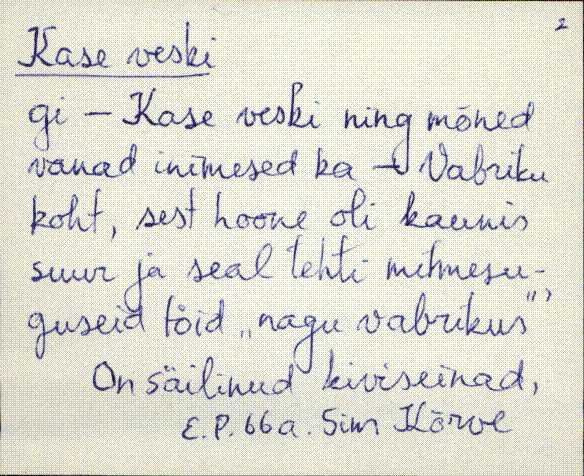 2
Kase veski
gi – Kase veski ning mõned
vanad inimesed ka – Vabriku
koht, sest hoone oli kaunis
suur ja seal tehti mitmesu-
guseid töid „nagu vabrikus”,
On säilinud kiviseinad,
E.P. 66 a. Sim Kõrve